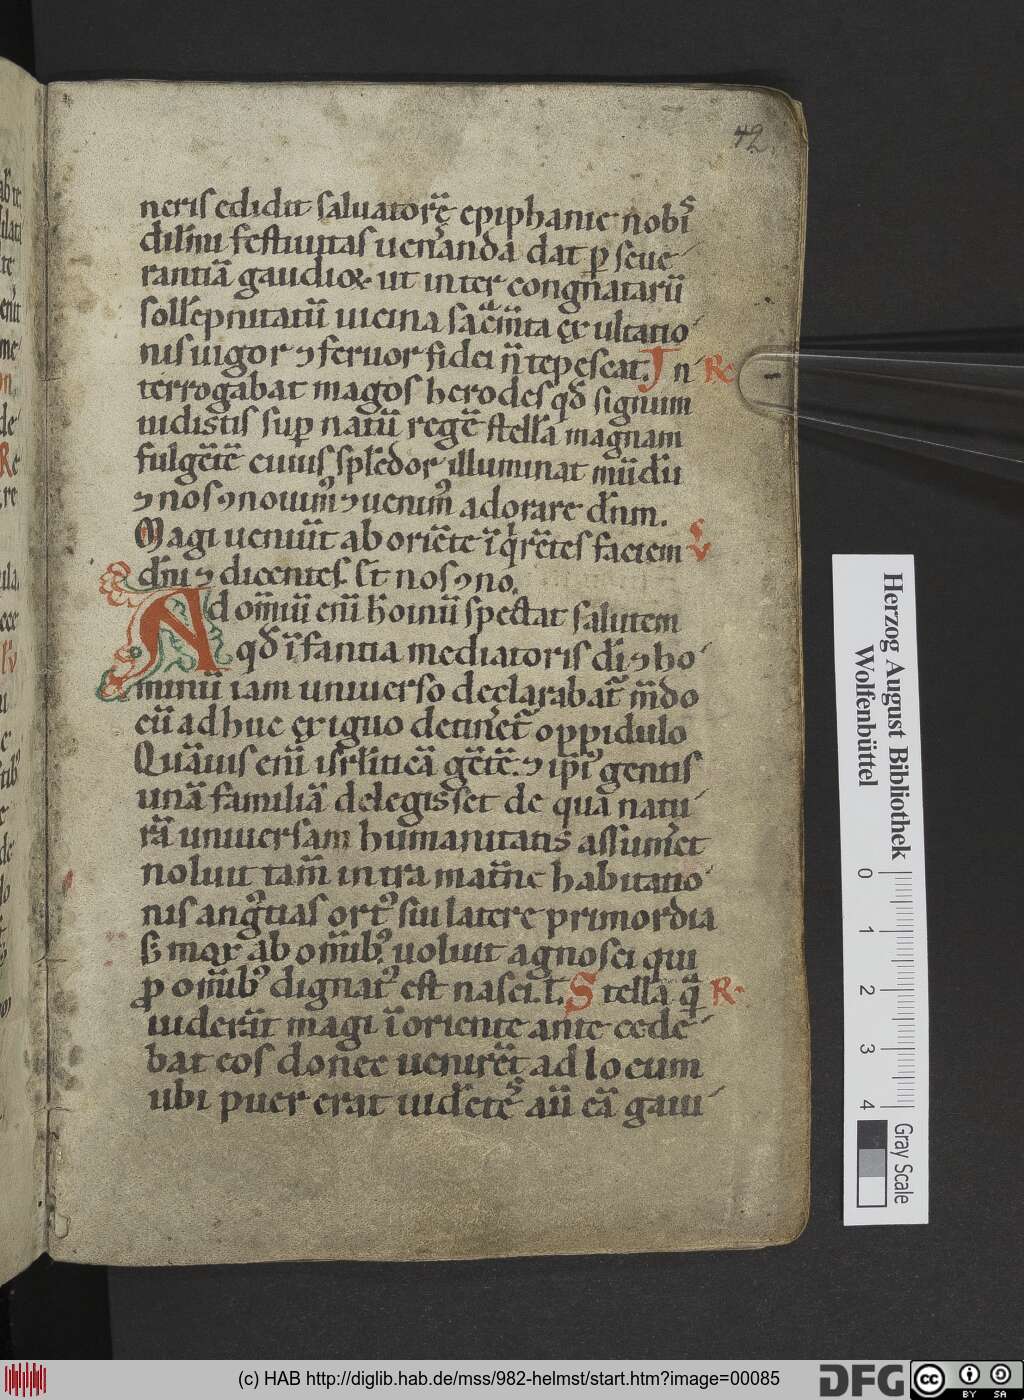 42.
neris edidit saluatorē epiphanie nobͥs
dilm̄i festiuitas uen̄anda dat ꝑ seue
rantiā gaudioꝝ ut inter congnatarū
soll̄epnitatū uicina sac̄m̄ta exultatio
nis uigor ⁊ feruor fidei n̄ tepescat. In R͛e
terrogabat magos herodes qđ signum
uidistis suꝑ natū regē stellā magnam
fulgētē cuius splēdor illuminat mūdū
⁊ nos ⁊nouim᷒ ⁊ uenim᷒ adorare dn̄m.
Magi ueniūt ab oriēte īq̄rētes faciem v
dn̄i ⁊ dicentes. Et nos ⁊no.
Ad om̄iū eni̅ hoi̅nū spectat salutem
qđ īfantia mediatoris dī ⁊ ho
minū iam uniuerso declarabat͛ m̄do
cū adhuc exiguo detin̄et͛ oppidulo
Quāuis eni̅ isrl̄iticā gētē. ⁊ ip̄i᷒ gentis
unā familiā delegisset de qua natu
rā uniuersam humanitatis assum̄et
noluit tam̄ intra mat̄ne habitatio
nis angͥtias ort᷒ sui latere primordia
s; mox ab om̄ib᷒ uoluit agnosci qui
ꝓ om̄ib᷒ dignat᷒ est nasci. t. Stella q̄ R
uiderūt magi ī oriente antecede
bat eos donec uenirēt ad locum
ubi puer erat uidētes aū eā gaui
Herzog August Bibliothek
Wolfenbüttel
0 1 2 3 4
Gray Scale
(c) HAB http://diglib.hab.de/mss/982-helmst/start.htm?image=00085
DFG
cc BY SA